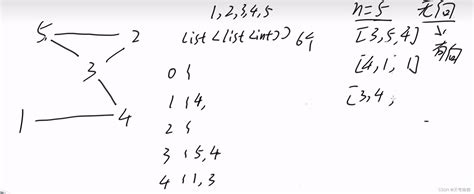 5 2
3
1 4
1,2,3,4,5
List<List<int>>
0 {
1 { 4,
2 {
3 { 5, 4
4 { 1, 3
n=5 无向
有向
[3,5,4]
[4,1,1]
[3,4,